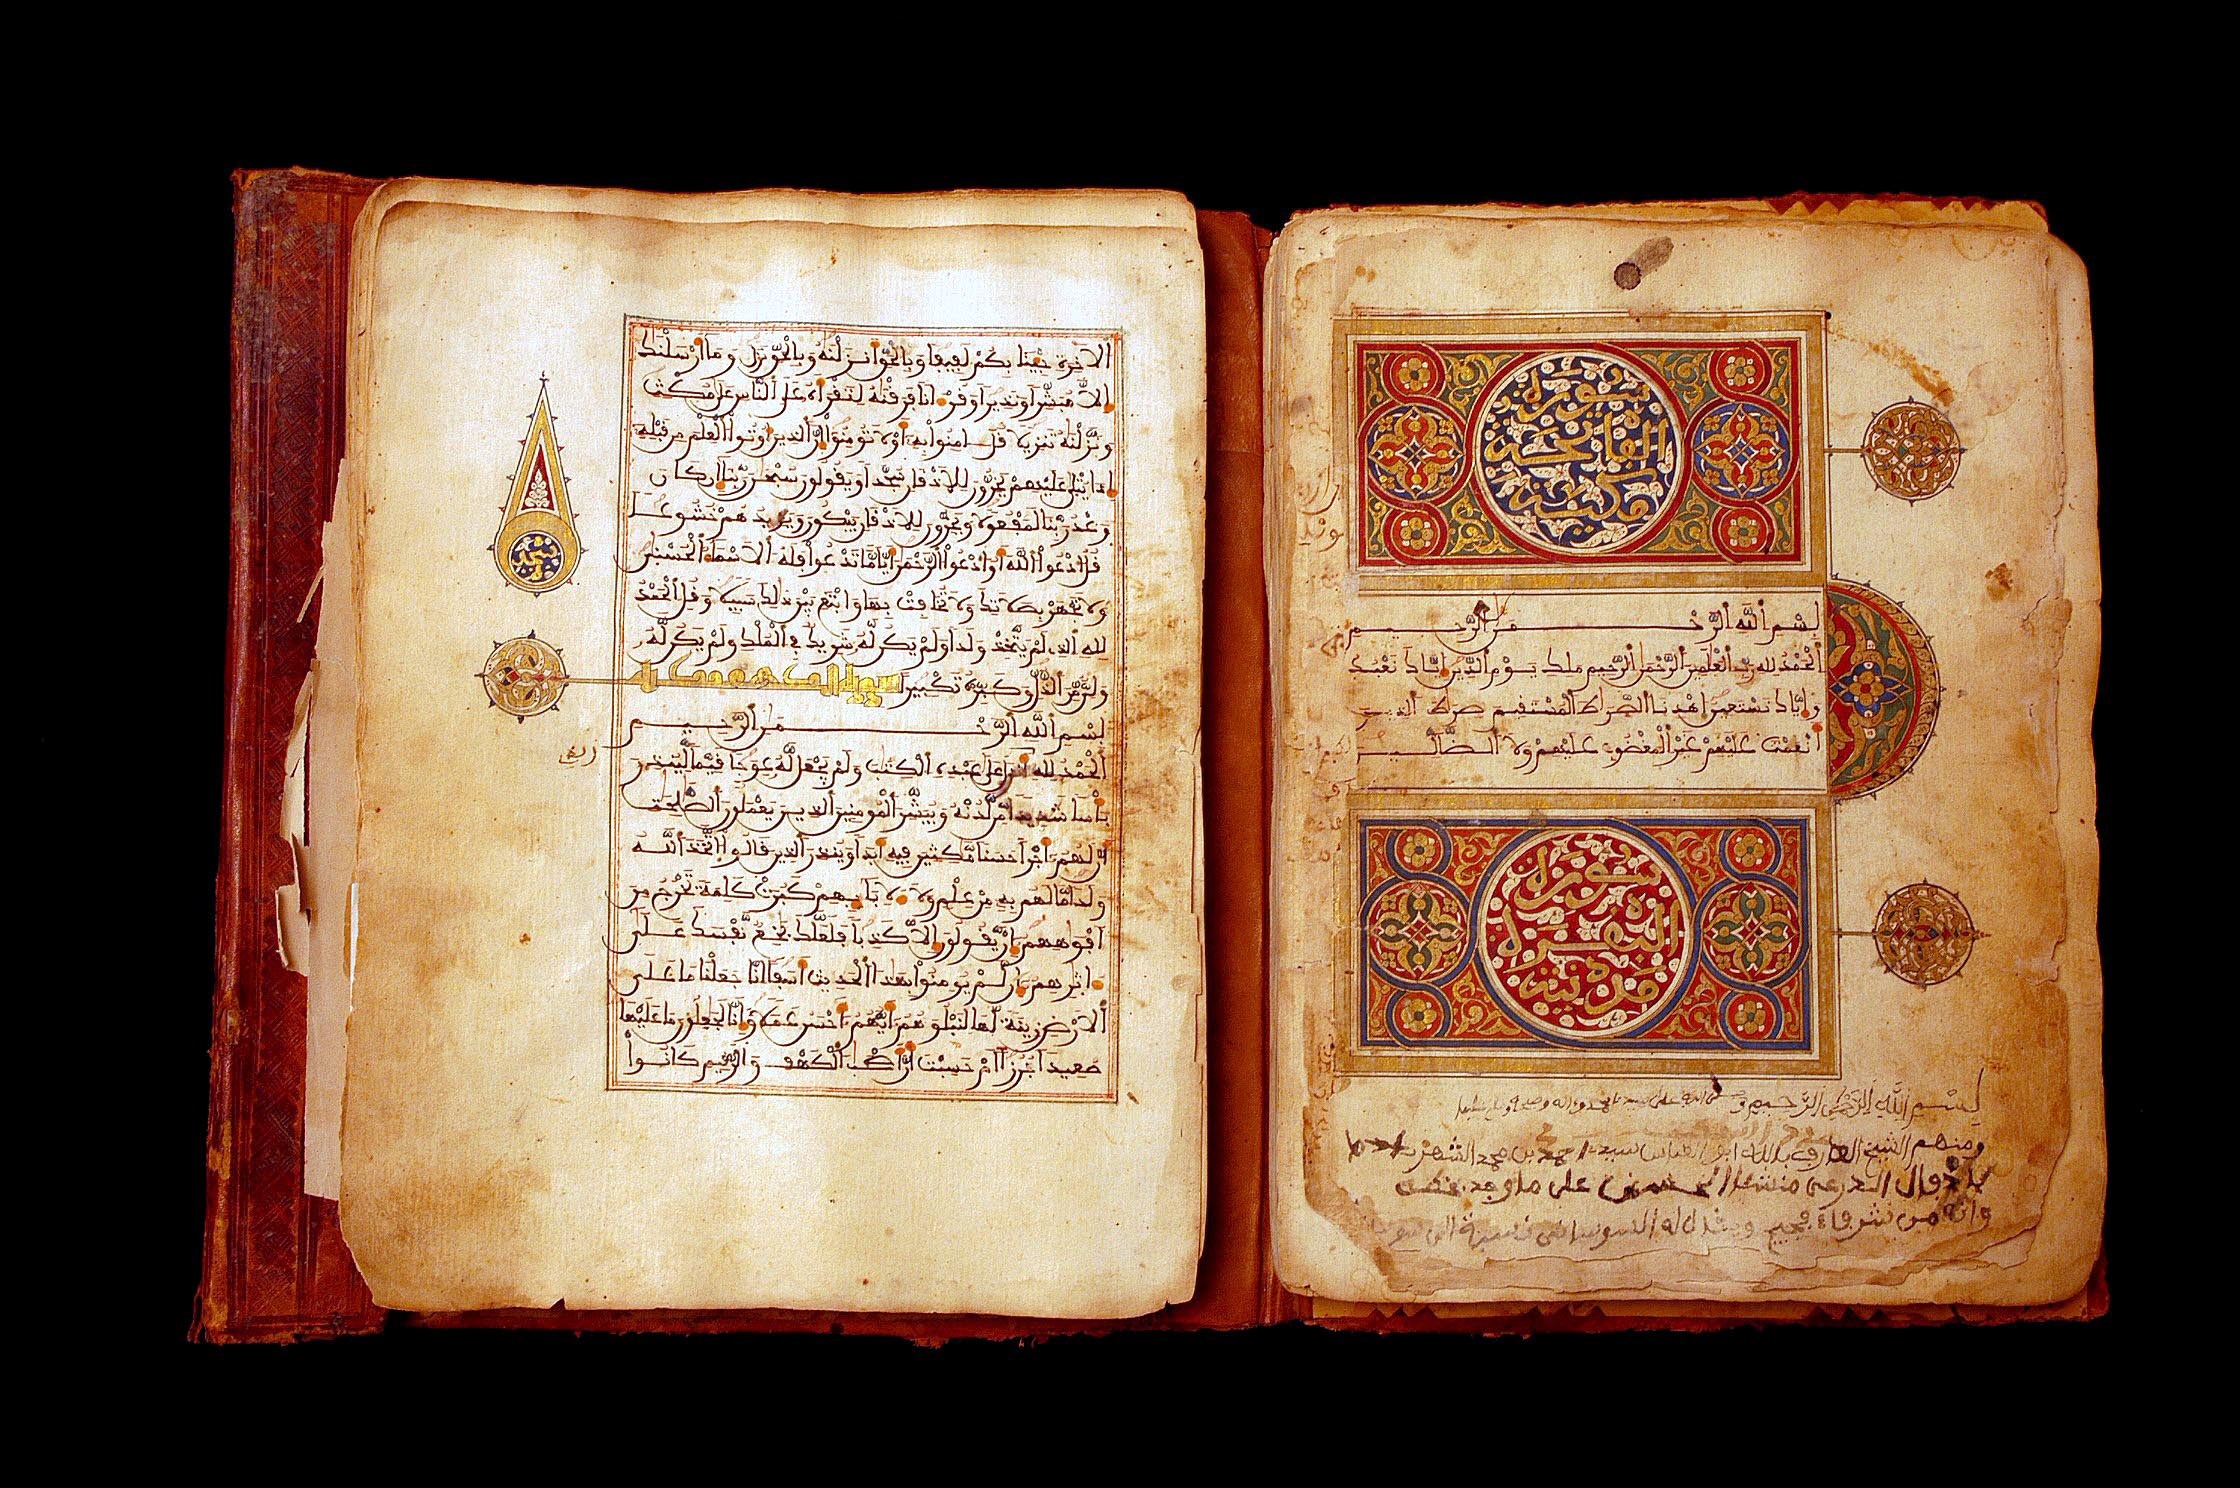 سورة
الفاتحة
مكية
بسم الله الرحمن الرحيم
الحمد لله رب العلمين الرحمن الرحيم ملك يوم الدين اياك نعبد
واياك نستعين اهدنا الصراط المستقيم صراط الذين
انعمت عليهم غير المغضوب عليهم ولا الضالين
البقرة
مدنية
بسم الله الرحمن الرحيم وصلى الله على سيدنا محمد وءاله وصحبه وسلم تسليما
ومنهم الشيخ العارف بالله ابو العباس سيدي احمد بن محمد الشهير
الدرعي منشئا الحسني على ما وجد بخطه
وانه من شرفاء فجيج ويقال له السوداني نسبة الى
الاخرة جئنا بكم لفيفا وبالحق انزلنه وبالحق نزل وما ارسلنك
الا مبشرا ونذيرا وقرءانا فرقنه لتقراه على الناس على مكث
ونزلنه تنزيلا قل امنوا به او لا تومنوا ان الذين اوتوا العلم من قبله
اذا يتلى عليهم يخرون للاذقان سجدا ويقولون سبحن ربنا ان كان
وعد ربنا لمفعولا ويخرون للاذقان يبكون ويزيدهم خشوعا
قل ادعوا الله او ادعوا الرحمن ايا ما تدعوا فله الاسماء الحسنى
ولا تجهر بصلاتك ولا تخافت بها وابتغ بين ذلك سبيلا وقل الحمد
لله الذي لم يتخذ ولدا ولم يكن له شريك في الملك ولم يكن له
ولي من الذل وكبره تكبيرا سورة الكهف مكية
بسم الله الرحمن الرحيم
الحمد لله الذي انزل على عبده الكتب ولم يجعل له عوجا قيما لينذر
باسا شديدا من لدنه ويبشر المومنين الذين يعملون الصلحت
ان لهم اجرا حسنا مكثين فيه ابدا وينذر الذين قالوا اتخذ الله
ولدا ما لهم به من علم ولا لابايهم كبرت كلمة تخرج من
افوههم ان يقولون الا كذبا فلعلك بخع نفسك على
ءاثرهم ان لم يومنوا بهذا الحديث اسفا انا جعلنا ما على
الارض زينة لها لنبلوهم ايهم احسن عملا وانا لجعلون ما عليها
صعيدا جرزا ام حسبت ان اصحب الكهف والرقيم كانوا
سجدة